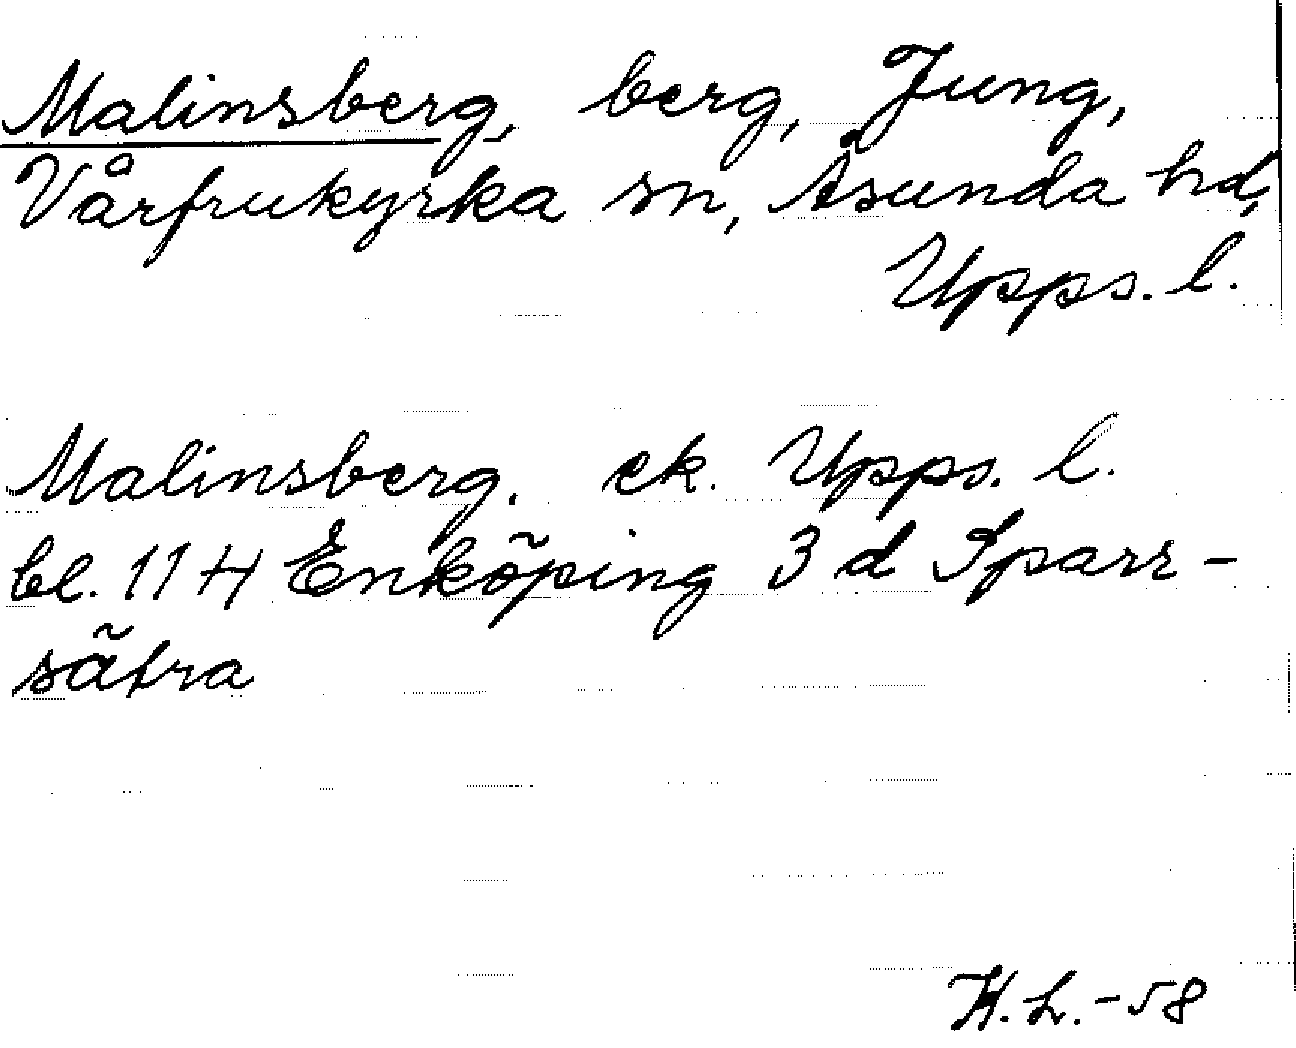 Malinsberg, berg, Jung,
Vårfrukyrka sn, Åsunda hd,
Upps. l.
Malinsberg. ek. Upps. l.
bl. 11 H Enköping 3 d Sparr-
sätra
H. L. - 58